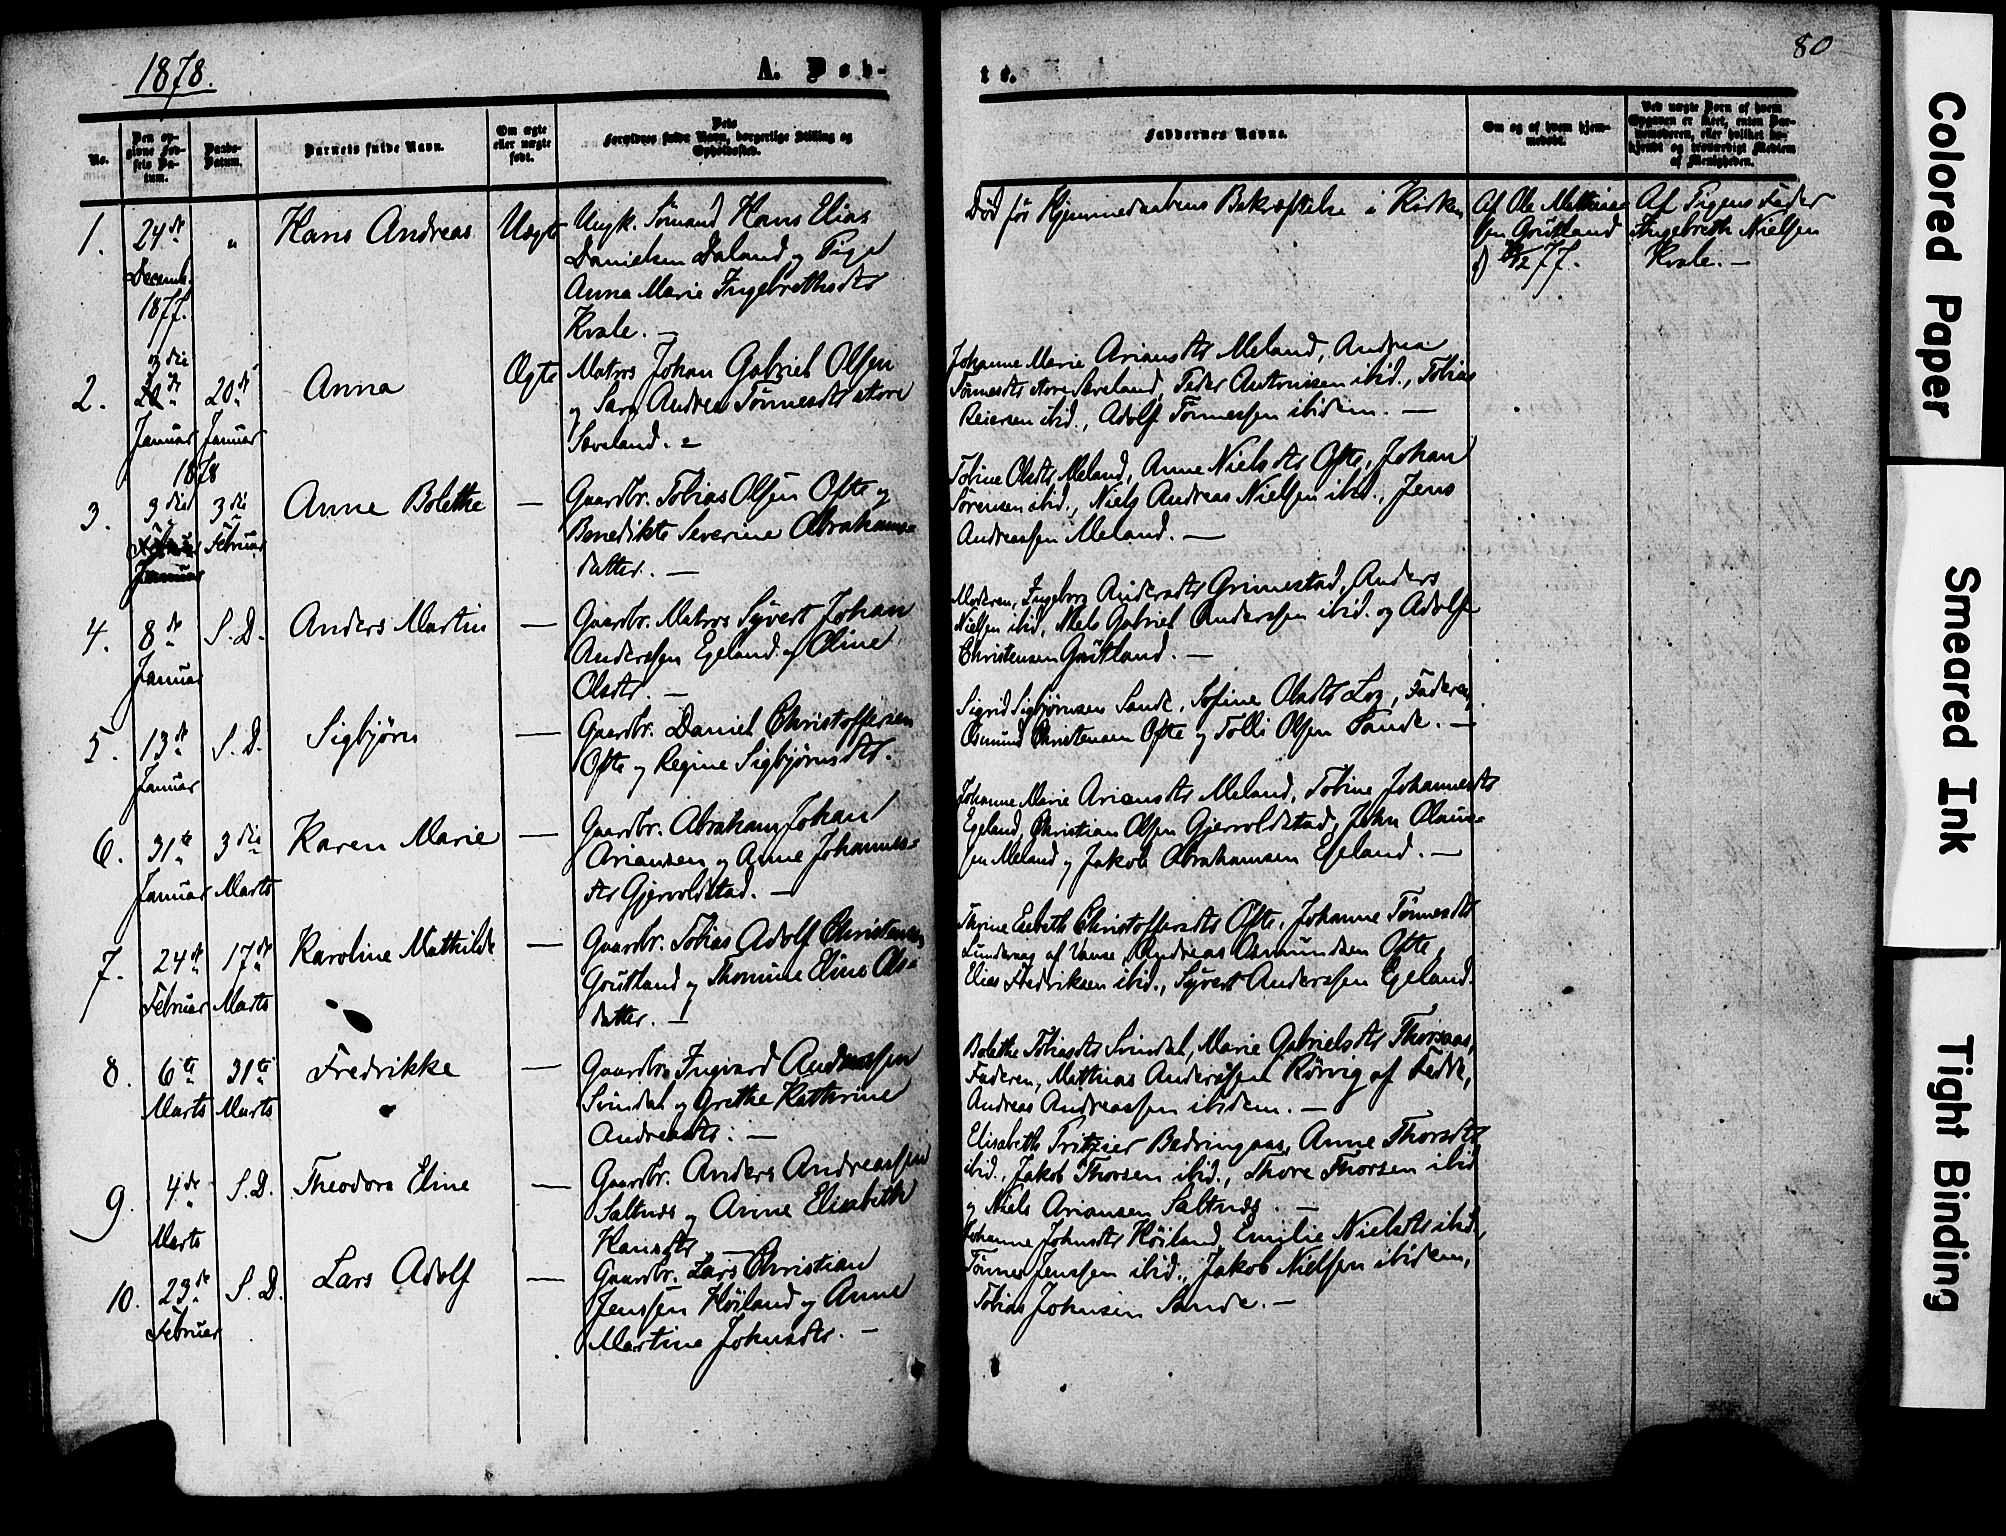 1878.
A. Døb-
te.
80
No.
Den op-
givne Fød-
sels Da-
tum.
Daabs-
Datum.
Barnets fulde Navn.
Om ægte
eller uægte
født.
Dets
Forældres fulde Navn, borgerlige Stilling og
Opholdssted.
Faddernes Navne.
Om og af hvem hjem-
medøbt.
Ved uægte Børn af hvem
Opgaven er skeet, enten Jor-
demoderen, eller hvilket be-
kjendt og troværdigt Medlem
af Menigheden.
1.
24de
Decemb.
1877.
"
Hans Andreas
Uægte
Ungk. Sømand Hans Elias
Danielsen Daland og Pige
Anna Marie Ingebrethsdtr
Kvale. —
Død før Hjemmedaabens Bekræftelse i Kirken
Af Ole Mathias-
sen Grütland
77.
Af Pigens Fader
Ingebreth Nielsen
Kvale. —
2.
Januar
1878
20de
Januar
Anna
Ægte
Matros Johan Gabriel Olsen
og Sara Andrea Tønnesdtr store
Seveland. =
Johanne Marie Ariansdtr Meland, Andrea
Tønnesdtr store Seveland, Peder Antonisen ibid., Tobias
Reiersen ibid., Adolf Tønnessen ibidem. —
3.
3die
Januar
3die
Februar
Anne Bolethe
—
Gaardbr. Tobias Olsen Ofte og
Benedikte Severine Abrahams-
datter. —
Tobine Olsdtr Meland, Anne Nielsdtr Ofte, Johan
Sørensen ibid., Niels Andreas Nielsen ibid., Jens
Andreassen Meland. —
4.
8de
Januar
S. D.
Anders Martin
—
Gaardbr. Matros Syvert Johan
Anderssen Egeland og Oline
Olsdtr. —
Moderen, Ingeborg Andersdtr Grimestad, Anders
Nielsen ibid, Niels Gabriel Anderssen ibid. og Adolf
Christensen Grütland. —
5.
13de
Januar
S. D.
Sigbjørn
—
Gaardbr. Daniel Christoffersen
Ofte og Regine Sigbjørnsdtr.
Sigrid Sigbjørnsen Sande, Sofine Olsdtr Log, Faderen,
Osmund Christensen Ofte og Tolli Olsen Sande. —
6.
31te
Januar
3die
Marts
Karen Marie
—
Gaardbr. Abraham Johan
Ariansen og Anne Johannes-
dtr Gjervoldstad. —
Johanne Marie Ariansdtr Meland, Tobine Johannesdtr
Egeland, Christian Olsen Gjervoldstad, John Olaus-
sen Meland og Jakob Abrahamsen Egeland. —
7.
24de
Februar
17de
Marts
Karoline Mathilde
—
Gaardbr. Tobias Adolf Christensen
Grütland og Thomine Eline Ols-
datter. —
Thrine Elebeth Christoffersdtr Ofte, Johanne Tønnesdtr
af Vanse, Andreas Osmundsen Ofte,
Elias Fredriksen ibid., Syvert Anderssen Egeland.
8.
6te
Marts
31te
Marts
Fredrikke
—
Gaardbr. Ingvard Andreassen
Svindal og Grethe Kathrine
Andreasdtr. —
Bolethe Tobiasdtr Svindal, Marie Gabrielsdtr Thorsaas,
Faderen, Matthias Anderssen Rørvig af Fedde,
Andreas Andreassen ibidem. —
9.
4de
Marts
S. D.
Theodora Eline
—
Gaardbr. Anders Andreassen
Saltnes og Anne Elisabeth
Hansdtr —
Elisabeth Fritzier Bedringaas, Anne Thorsdtr
ibid., Jakob Thorsen ibid., Thore Thorsen ibid
og Niels Ariansen Saltnes. —
10.
23de
Februar
S. D.
Lars Adolf
—
Gaardbr. Lars Christian
Jenssen Høiland og Anne
Martine Johnsdtr. —
Johanne Johnsdtr Høiland, Emilie Nielsdtr ibid,
Tønnes Jenssen ibid., Jakob Nielsen ibidem,
Tobias Johnsen Sande. —
Colored Paper
Smeared Ink
Tight Binding